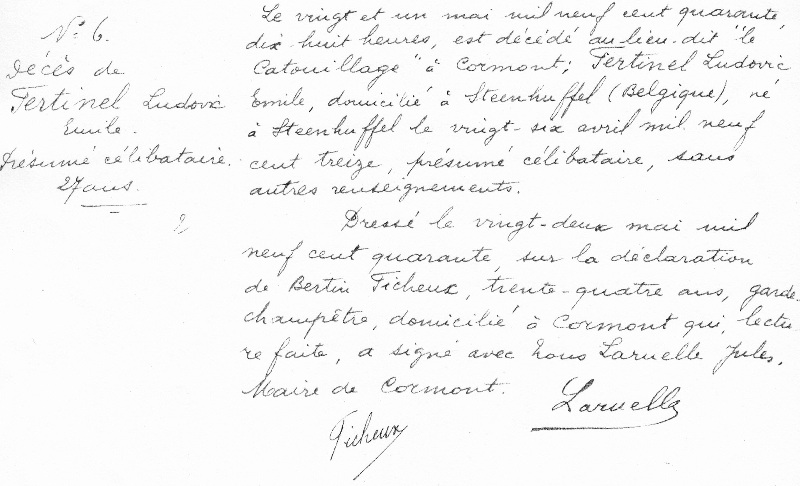 N° 6.
Décès de
Fertinel Ludovic
Emile.
Présumé célibataire.
27 ans.
2
Le vingt et un mai mil neuf cent quarante,
dix huit heures, est décédé au lieu-dit "le
Catouillage" à Cormont; Fertinel Ludovic
Emile, domicilié à Steenhuffel (Belgique), né
à Steenhuffel le vingt-six avril mil neuf
cent treize, présumé célibataire, sans
autres renseignements.
Dressé le vingt-deux mai mil
neuf cent quarante, sur la déclaration
de Bertin Ficheux, trente-quatre ans, garde-
champêtre, domicilié à Cormont qui, lectu-
re faite, a signé avec Nous Laruelle Jules,
Maire de Cormont.
Laruelle
Ficheux